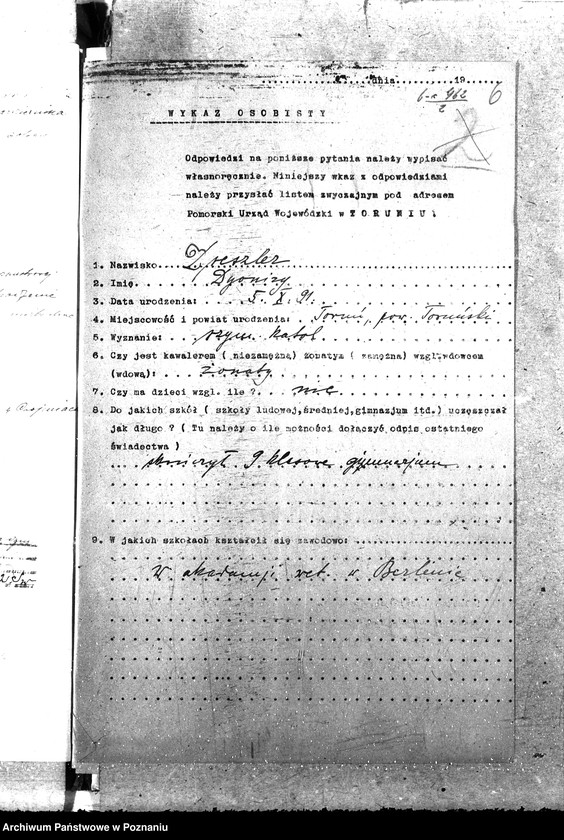 dnia 19
6
WYKAZ OSOBISTY
Odpowiedzi na poniższe pytania należy wypisać
własnoręcznie. Niniejszy wkaz z odpowiedziami
należy przysłać listem zwyczajnym pod adresem
Pomorski Urząd Wojewódzki w TORUNIU.
1. Nazwisko
2. Imię. Dyonizy
3. Data urodzenia: 5. X. 91.
4. Miejscowość i powiat urodzenia: Toruń, pow. Toruński
5. Wyznanie: rzym. katol
6. Czy jest kawalerem ( niezamężną) żonatym ( zamężna) wzgl.wdowcem
(wdową): żonaty
7. Czy ma dzieci wzgl. ile ? nie
8. Do jakich szkół ( szkoły ludowej,średniej,gimnazjum itd.) uczęszczał
jak długo ? ( Tu należy o ile możności dołączyć odpis ostatniego
świadectwa )
skończył 9. klasowe gymnazjum
9. W jakich szkołach kształcił się zawodowo:
W akademji wet. w Berlinie
Archiwum Państwowe w Poznaniu